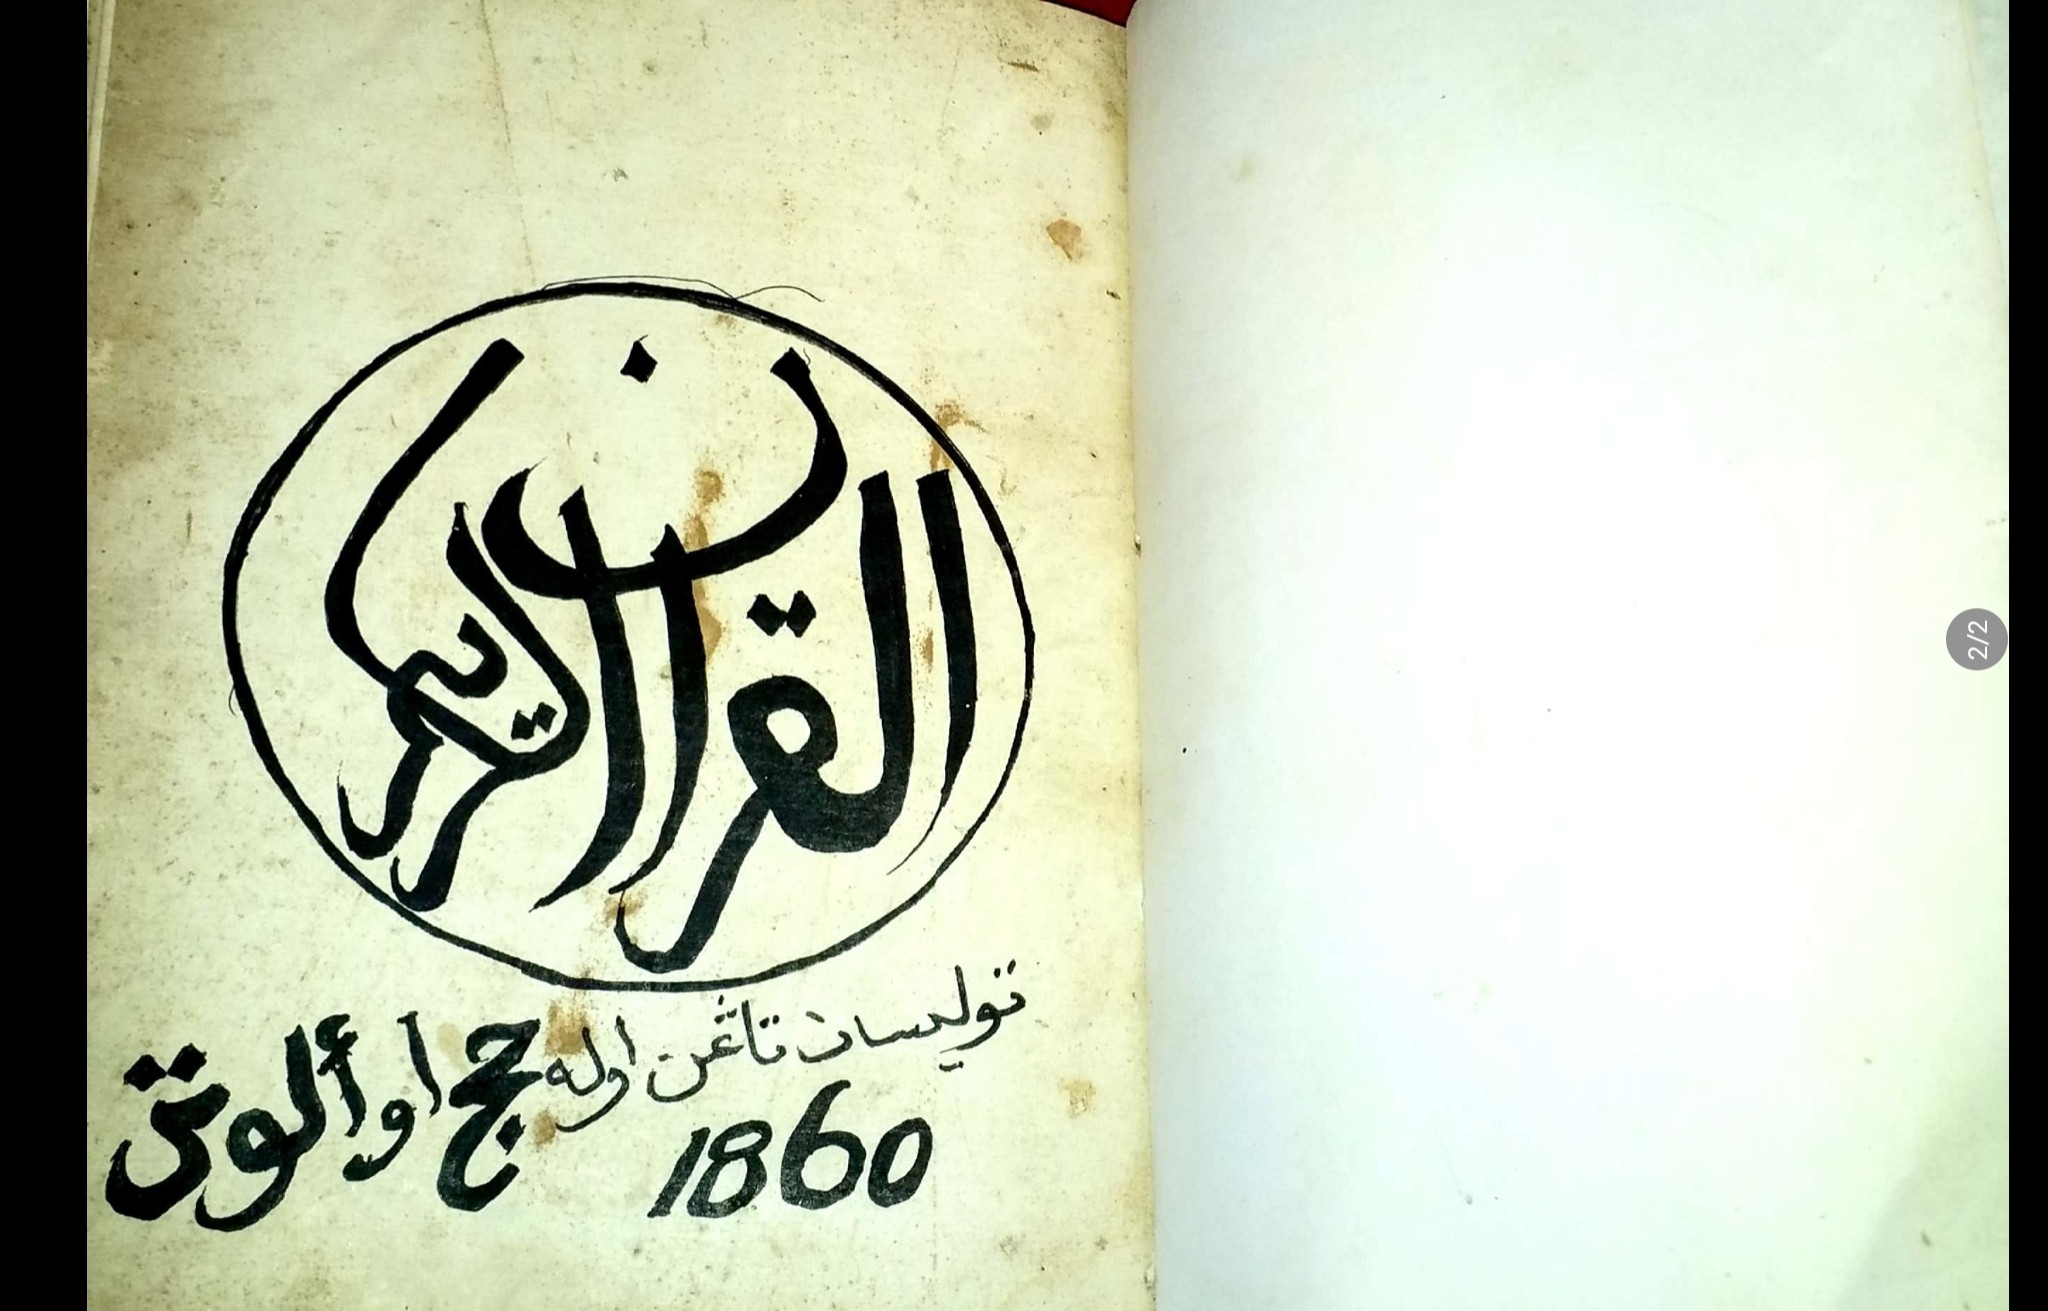 القران الكريم
توليسان تاڠن اوله حج او ألوتق
1860
2/2